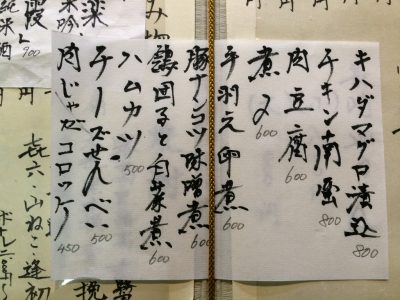 キハダマグロ漬丼 800
チキン南蛮 800
肉豆腐 600
煮〆 600
手羽元卵煮 600
豚ナンコツ味噌煮 600
鶏団子と白菜煮 600
ハムカツ 500
チーズせんべい 500
肉じゃがコロッケ 450
霞
純米酒
900
喜六・山ねこ・逢初